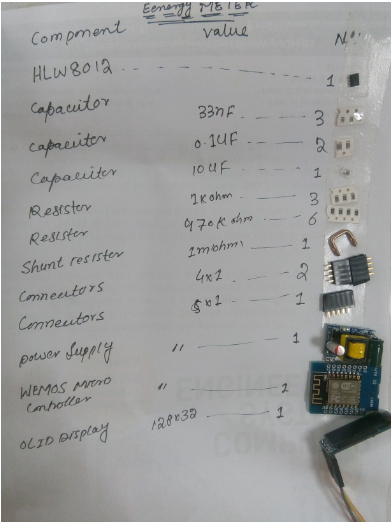 Eenergy METER
Component value No.
HLW8012 1
Capacitor 33nF 3
Capacitor 0.1UF 2
Capacitor 10UF 1
Resister 1Kohm 3
Resister 470Kohm 6
Shunt resister 1mohm 1
Connectors 4x1 2
Connectors 5x1 1
power Supply " 1
WEMOS Micro Controller " 1
OLID Display 128x32 1